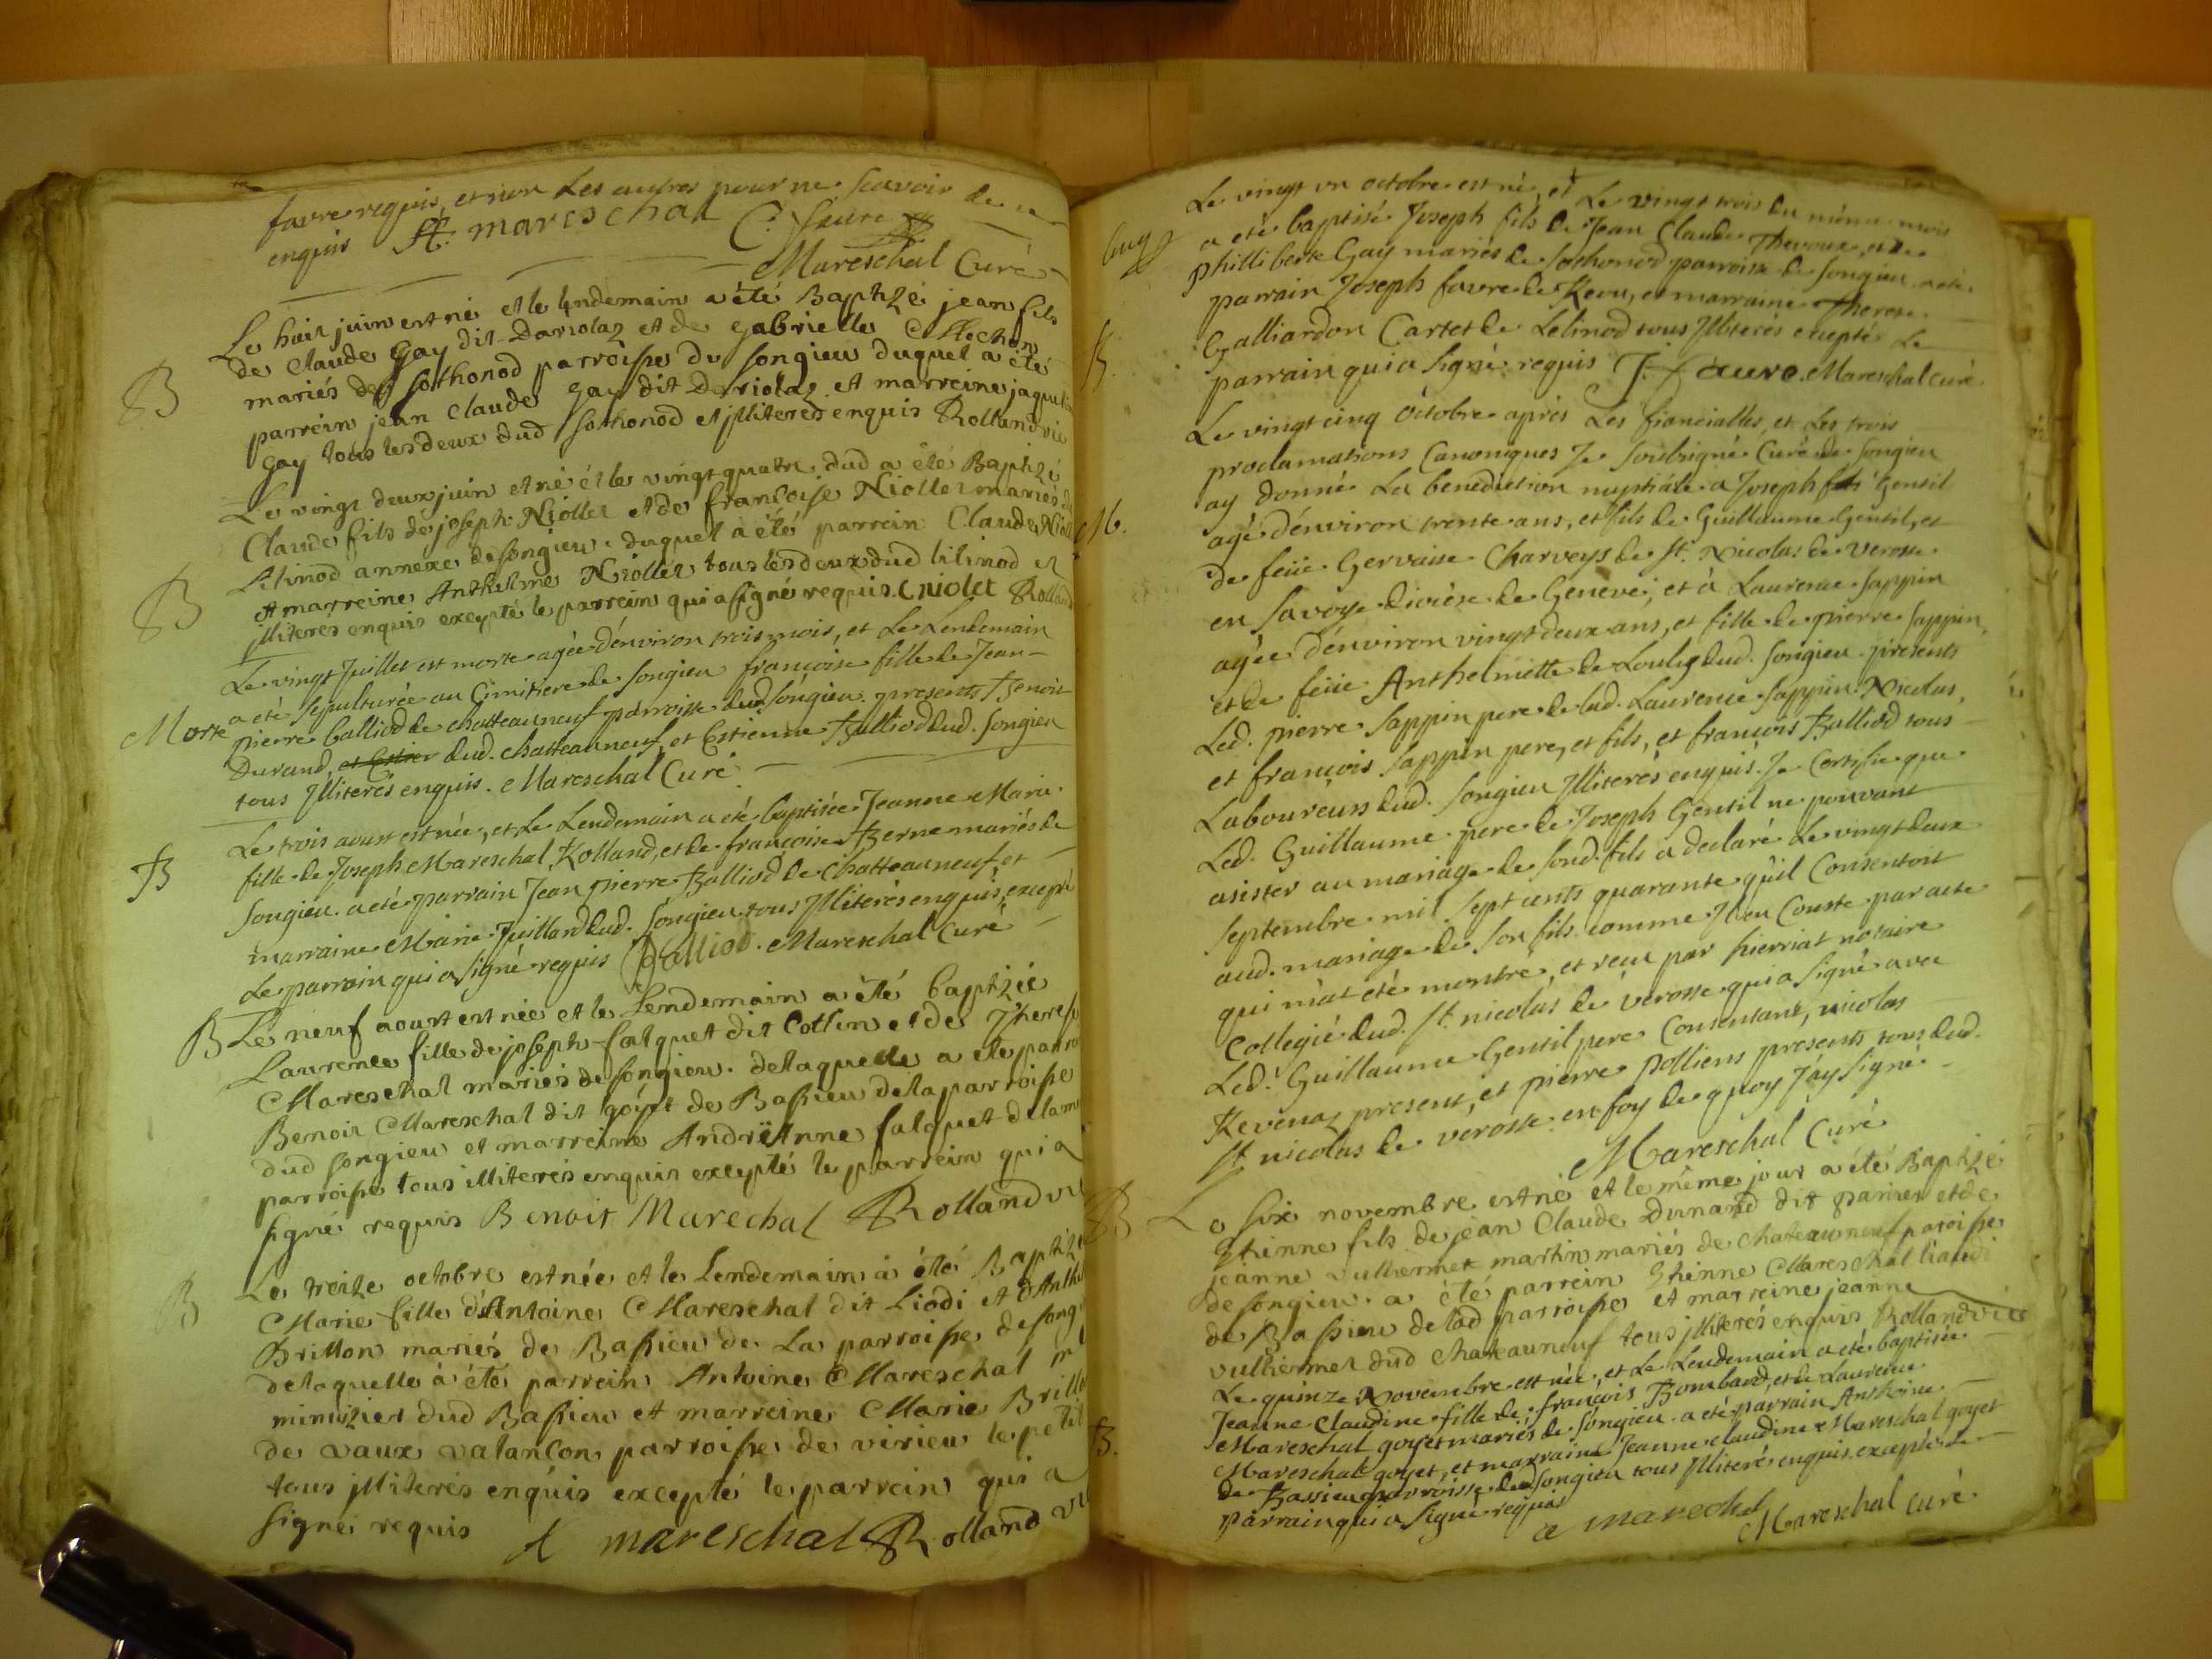 favre requis, et non les autres pour ne scavoir de ce
enquis St. mareschal C. favre
Mareschal Curé
B
Le huit juin est né et le lendemain a été Baptizé jean fils
de Claude Gay dit Dariolaz et de gabrielle
mariés de sothonod parroisse de songieu duquel a été
parrein jean claude gay dit Dariolaz et marreine
gay tous les deux dud sothonod et jlliterés enquis Rolland vic
B
Le vingt deux juin et né et le vingt quatre dud a été Baptizé
Claude fils de joseph Niollet et de francoise Niollet mariés de
lilinod annexe de songieu. duquel a été parrein Claude
et marreine Anthelme Niollet tous les deux dud lilinod et
jlliterés enquis excepté le parrein qui a signé requis. C niolet Rolland
Morte
Le vingt Juillet est morte agée d'environ trois mois, et Le Lendemain
a eté sepulturée au Cimitiere de songieu francoise fille de Jean
pierre balliod de chatteauneuf parroisse dud songieu. presents Benoit
Durand, dud. chatteauneuf, et Estienne Balliod dud. songieu
tous Jlliterés enquis. Mareschal Curé
B
Le trois aoust est née, et Le Lendemain a eté baptisée Jeanne Marie
fille de Joseph Mareschal Rolland, et de francoise Berne mariés de
songieu. a eté parrain Jean pierre Balliod de Chatteauneuf, et
marraine Marie Juilland dud. songieu tous Jlliterés enquis, excepté
Le parrain qui a signé requis Balliod. Mareschal Curé
B
Le neuf aoust est née et le lendemain a été baptizée
Laurence fille de joseph falquet dit Collin et de Therese
Mareschal mariés de songieu. de laquelle a ete
Benoit Mareschal dit goÿet de Bassieu de la parroisse
dud songieu et marreine Andrïanne falquet de la
parroisse tous illiterés enquis excepté le parrein qui a
signé requis Benoit Marechal Rolland
B
Le treize octobre est née et le Lendemain a été
Marie fille d'Antoine Mareschal dit Liodi et
Brillon mariés de Bassieu de la parroisse de
de laquelle à été parrein Antoine Mareschal
minuizier dud Bassieu et marreine Marie
de vaux valançon parroisse de virieu le petit
tous jlliterés enquis excepté le parrein qui a
signé requis A mareschal Rolland
B.
Le vingt un octobre est né, et Le vingt trois du même mois
a eté baptisé Joseph fils de Jean Claude Thevoux, et de
philliberte Gay mariés de sothonod parroisse de songieu. a eté
parrain Joseph favre de et marraine Therese
Galliardon Cartet de Lelinod tous Jlliterés excepté Le
parrain qui a signé requis J. Favre. Mareschal curé.
M.
Le vingt cinq octobre apres Les fiancialles, et Les trois
proclamations Canoniques Je soubsigné Curé de songieu
ay donné La benediction nuptiale a Joseph Gentil
agé d'environ trente ans, et fils de Guillaume Gentil, et
de feüe Gervaise Charveys de St. Nicolas de verosse
en savoye diocèse de Geneve, et à Laurence sappin
agée d'environ vingt deux ans, et fille de pierre sappin,
et de feüe Anthelmette de Louly dud. songieu presents
Led. pierre sappin pere de lad. Laurence sappin. Nicolas,
et françois sappin pere, et fils, et francois Balliod tous
Laboureurs dud. songieu Jlliterés enquis. Je Certifie que
Led. Guillaume pere de Joseph Gentil ne pouvant
asister au mariage de sond. fils a declaré Le vingt deux
septembre mil sept cents quarante qu'il Consentoit
aud. mariage de son fils comme Jl en Conste par acte
qui m'at eté montré, et receu par hierriat notaire
Collegié dud. St. nicolas de verosse qui a signé avec
Led. Guillaume Gentil pere Consentant, nicolas
Revenaz present, et pierre polliens presents tous dud.
St. nicolas de verosse. en foy de quoy J'ay signé
Mareschal Curé
B
Le six novembre est né et le même jour a été Baptizé
Ethinne fils de jean Claude Dunand dit et de
jeanne vulliermet martin mariés de chateauneuf paroisse
de songieu. a été parrein Ethinne Mareschal liaudi
de Bassieu de lad parroisse et marreine jeanne
vulliermet dud chateauneuf tous jlliterés enquis Rolland vic
B.
Le quinze Novembre est née, et Le Lendemain a eté baptisée
Jeanne Claudine fille de françois Bombard, et de Laurence
Mareschal goyet mariés de songieu. a eté parrain Anthoine
Mareschal goyet, et marraine Jeanne claudine Mareschal goyet
de Bassieu parroisse dud songieu tous Jlliterés enquis. excepté Le
parrain qui a signé requis
a marechal Mareschal curé